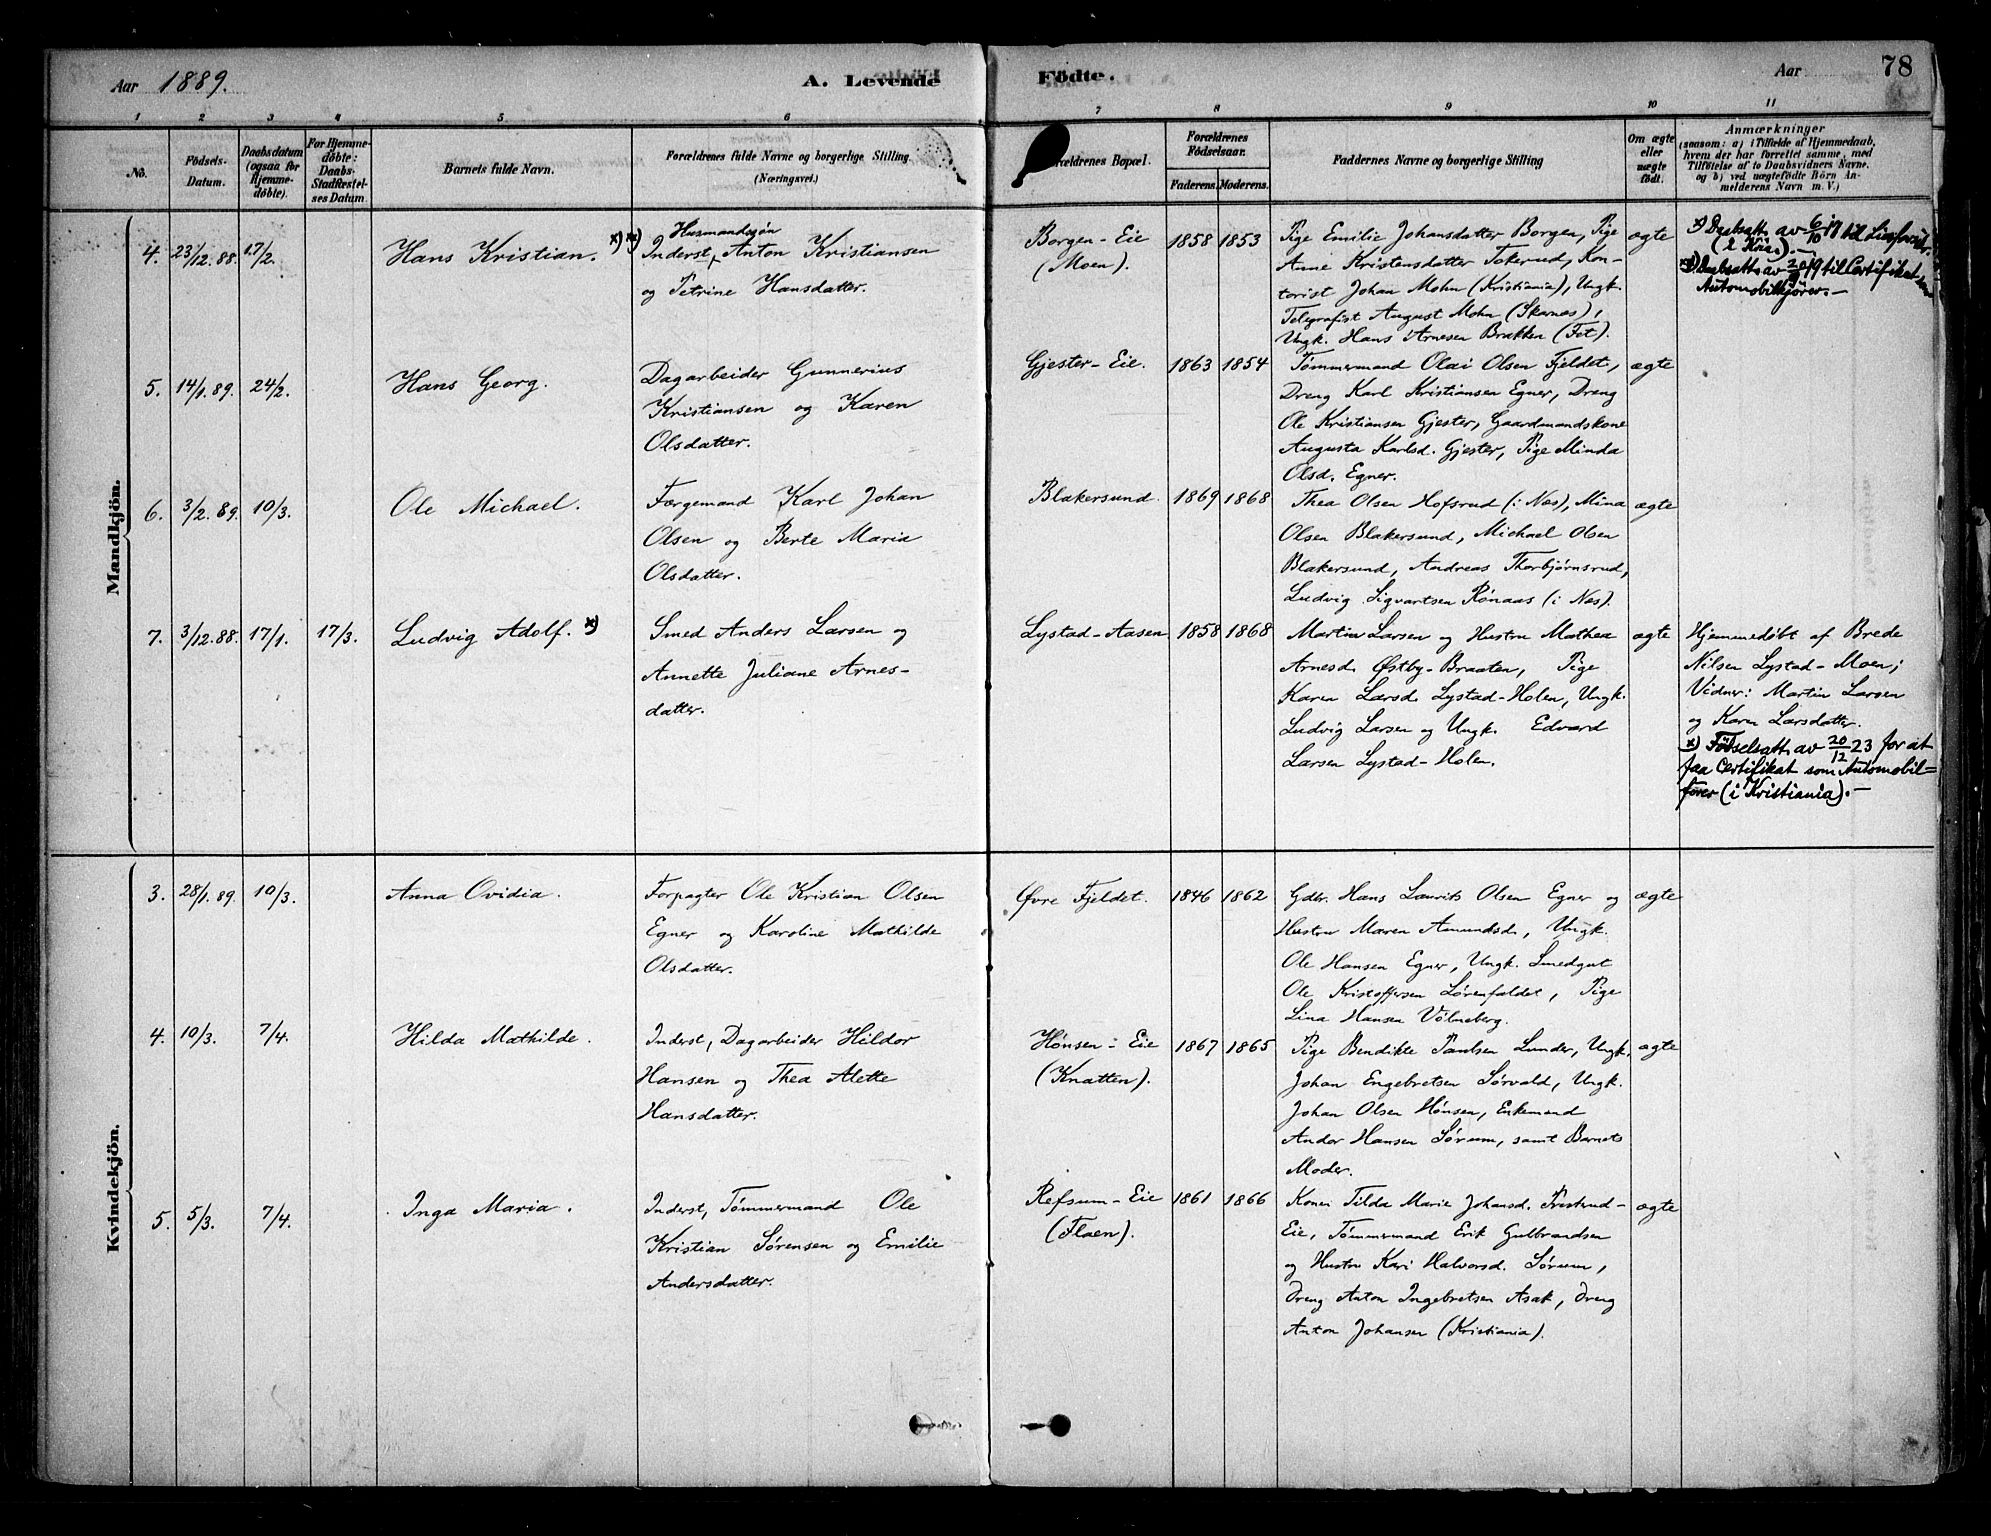 Aar 1889.
A. Levende
Födte.
Aar
78
1 2 3 4 5 6 7 8 9 10 11
No.
Födsels-Datum.
Daabsdatum (ogsaa for Hjemme-döbte).
For Hjemme-döbte: Daabs-Stadfæstel-ses Datum
Barnets fulde Navn.
Forældrenes fulde Navne og borgerlige Stilling (Næringsvei.)
Forældrenes Bopæl.
Forældrenes Födselsaar.
Faderens. Moderens.
Faddernes Navne og borgerlige Stilling
Om ægte eller uægte födt.
Anmærkninger
(saasom: a) i Tilfælde af Hjemmedaab,
hvem der har forrettet samme, med
Tilföielse af to Daabsvidners Navne.
og b) ved uægtefödte Börn An-
melderens Navn m. V.)
Mandkjön.
4. 23/12. 88. 17/2. Hans Kristian. x) x)
Husmandssøn
Inderst, Anton Kristiansen
og Petrine Hansdatter.
Borgen-Eie
(Moen).
1858 1853
Pige Emilie Johansdatter Borgen, Pige
Anne Kristensdatter Tokerud, Kon-
torist Johan Mohn (Kristiania), Ungk.
Telegrafist August Mohn (Skarnes),
Ungk. Hans Arnesen Brakken (Fet).
ægte
x) Daabsatt. av 6/10 17 til
(i Kria).-
x) Daabsatt. av 20/9 19 til Certifikat som
Automobilkjører.-
5. 14/1. 89. 24/2. Hans Georg.
Dagarbeider Gunnerius
Kristiansen og Karen
Olsdatter.
Gjester-Eie. 1863 1854
Tømmermand Olai Olsen Fjeldet,
Dreng Karl Kristiansen Egner, Dreng
Ole Kristiansen Gjester, Gaardmandskone
Augusta Karlsd. Gjester, Pige Minda
Olsd. Egner.
ægte
6. 3/2. 89. 10/3. Ole Michael.
Færgemand Karl Johan
Olsen og Berte Maria
Olsdatter.
Blakersund. 1869 1868
Thea Olsen Hofsrud (i Nes), Mina
Olsen Blakersund, Michael Olsen
Blakersund, Andreas Thorbjørnsrud,
Ludvig Sigvartsen Rønaas (i Nes).
ægte
7. 3/12. 88. 17/1. 17/3. Ludvig Adolf. x)
Smed Anders Larsen og
Annette Juliane Arnes-
datter.
Lystad-Aasen 1858 1868
Martin Larsen og Hustru Mathea
Arnesd. Østby-Braaten, Pige
Karen Larsd. Lystad-Holen, Ungk.
Ludvig Larsen og Ungk. Edvard
Larsen Lystad-Holen.
ægte
Hjemmedøbt af Brede
Nilsen Lystad-Moen;
Vidner: Martin Larsen
og Karen Larsdatter.
x) Fødselsatt. av 20/12 23 for at
faa Certifikat som Automobil=
fører (i Kristiania).-
Kvindekjön.
3. 28/1. 89. 10/3. Anna Ovidia.
Forpagter Ole Kristian Olsen
Egner og Karoline Mathilde
Olsdatter.
Øvre Fjeldet. 1846 1862
Gdbr. Hans Laurits Olsen Egner og
Hustru Maren Amundsd., Ungk.
Ole Hansen Egner, Ungk. Smedgut
Ole Kristoffersen Sørenfaldet, Pige
Lina Hansen Völneberg.
ægte
4. 10/3. 7/4. Hilda Mathilde.
Inderst, Dagarbeider Hildor
Hansen og Thea Alette
Hansdatter.
Hønsen-Eie
(Knatten).
1867 1865
Pige Bendikte Paulsen Lunder, Ungk.
Johan Engebretsen Sørvald, Ungk.
Johan Olsen Hønsen, Enkemand
Andor Hansen Sørum, samt Barnets
Moder.
ægte
5. 5/3. 7/4. Inga Maria.
Inderst, Tømmermand Ole
Kristian Sørensen og Emilie
Andersdatter.
Refsum-Eie
(Flaen).
1861 1866
Kone Tilda Marie Johansd. Prestrud-
Eie, Tømmermand Erik Gulbrandsen
og Hustru Kari Halvorsd. Sørum,
Dreng Anton Ingebretsen Asak, Dreng
Anton Johansen (Kristiania).
ægte